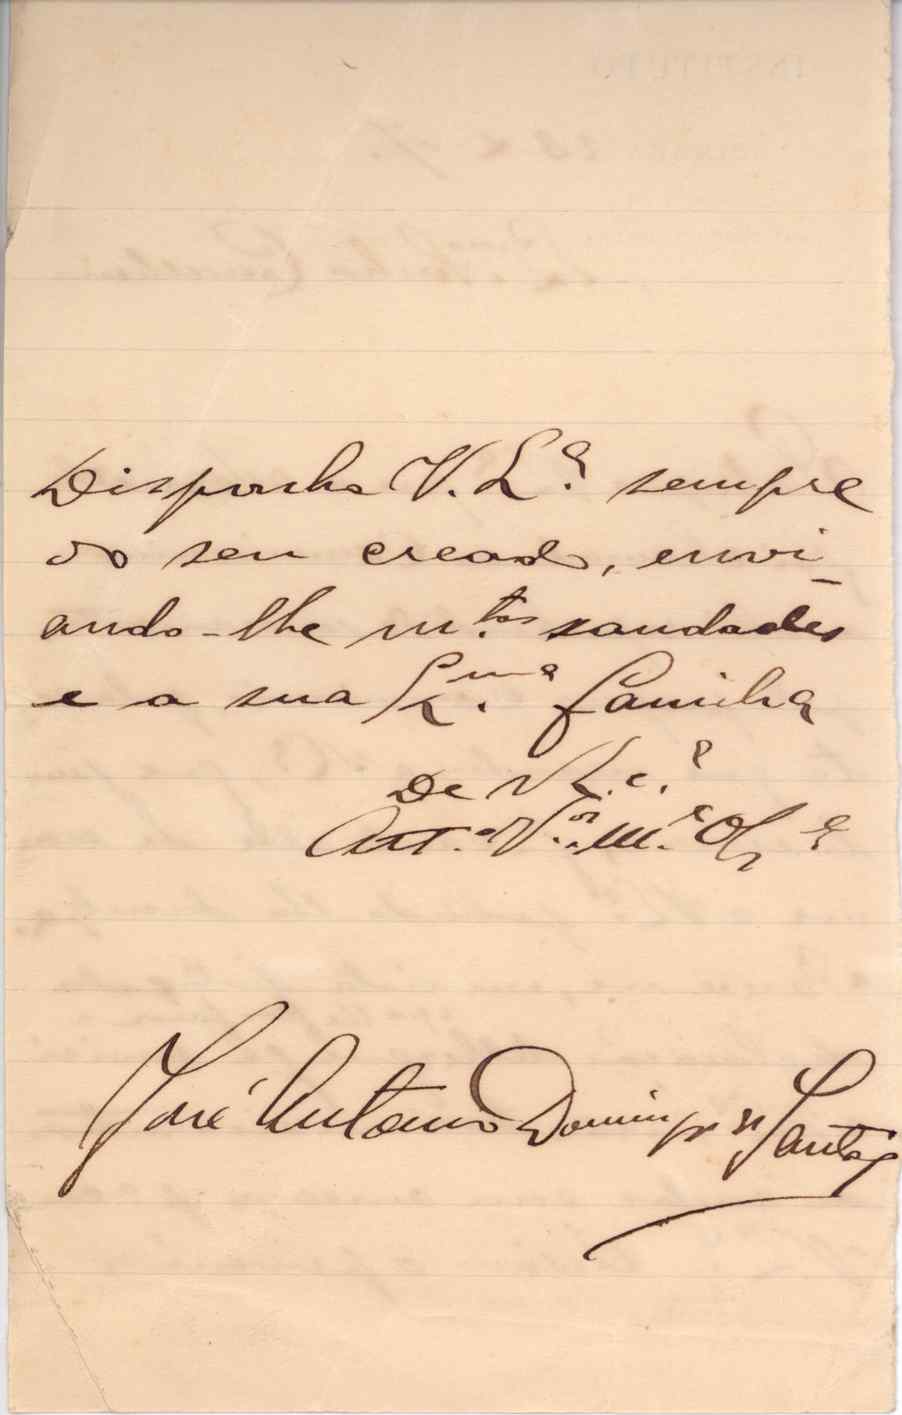 Disponha V. Ex.ª sempre
do seu creado, envi
ando-lhe m.tos saudades
e a sua Ex.ma familia
De V. Ex.ª
Am.º V.or M.to Obg.º
José Antonio Domingues Santos